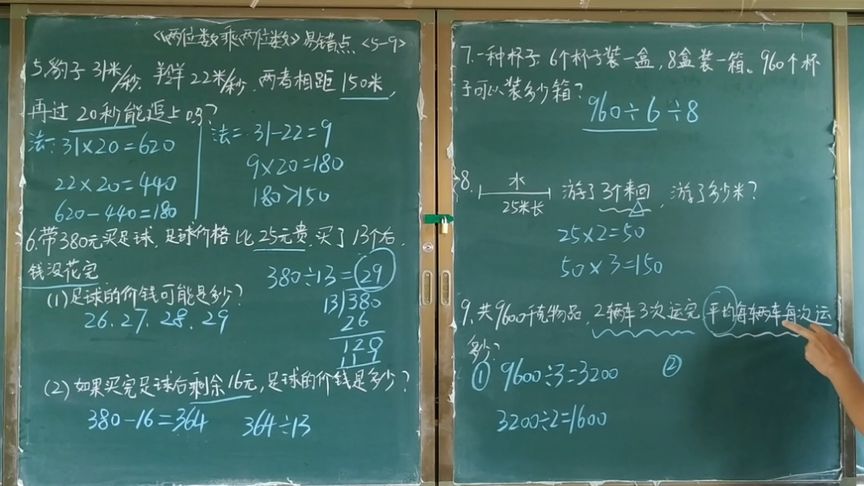 《两位数乘两位数》易错点 <5-9>
5.豹子 31米/秒, 羚羊 22米/秒, 两者相距 150米,
再过 20秒能追上吗?
法一:31×20=620
22×20=440
620-440=180
法二: 31-22=9
9×20=180
180>150
6.带380元买足球, 足球价格比25元贵,买了13个后,
钱没花完
(1)足球的价钱可能是多少?
26.27.28.29
380÷13=29
13 380
26
129
119
(2)如果买完足球后剩余16元,足球的价钱是多少?
380-16=364 364÷13
7.一种杯子 6个杯子装一盒,8盒装一箱。960个杯
子可以装多少箱?
960÷6÷8
8. 水
25米长
游了3个来回,游了多少米?
25×2=50
50×3=150
9.共9600千克物品, 2辆车3次运完,平均每辆车每次运
多少?
① 9600÷3=3200
3200÷2=1600
②